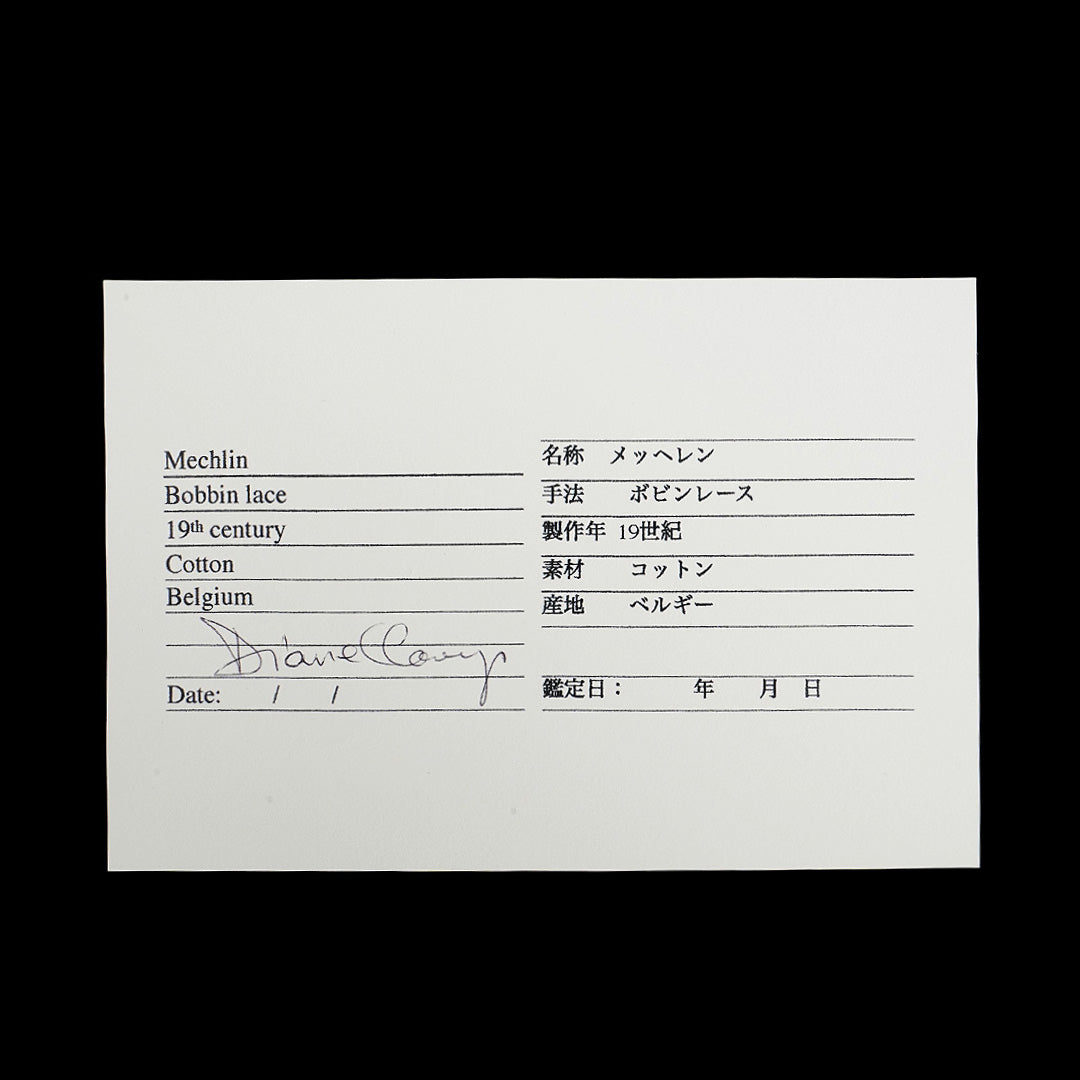 Mechlin
Bobbin lace
19th century
Cotton
Belgium
Diane
Date: / /
名称 メッヘレン
手法 ボビンレース
製作年 19世紀
素材 コットン
産地 ベルギー
鑑定日: 年 月 日